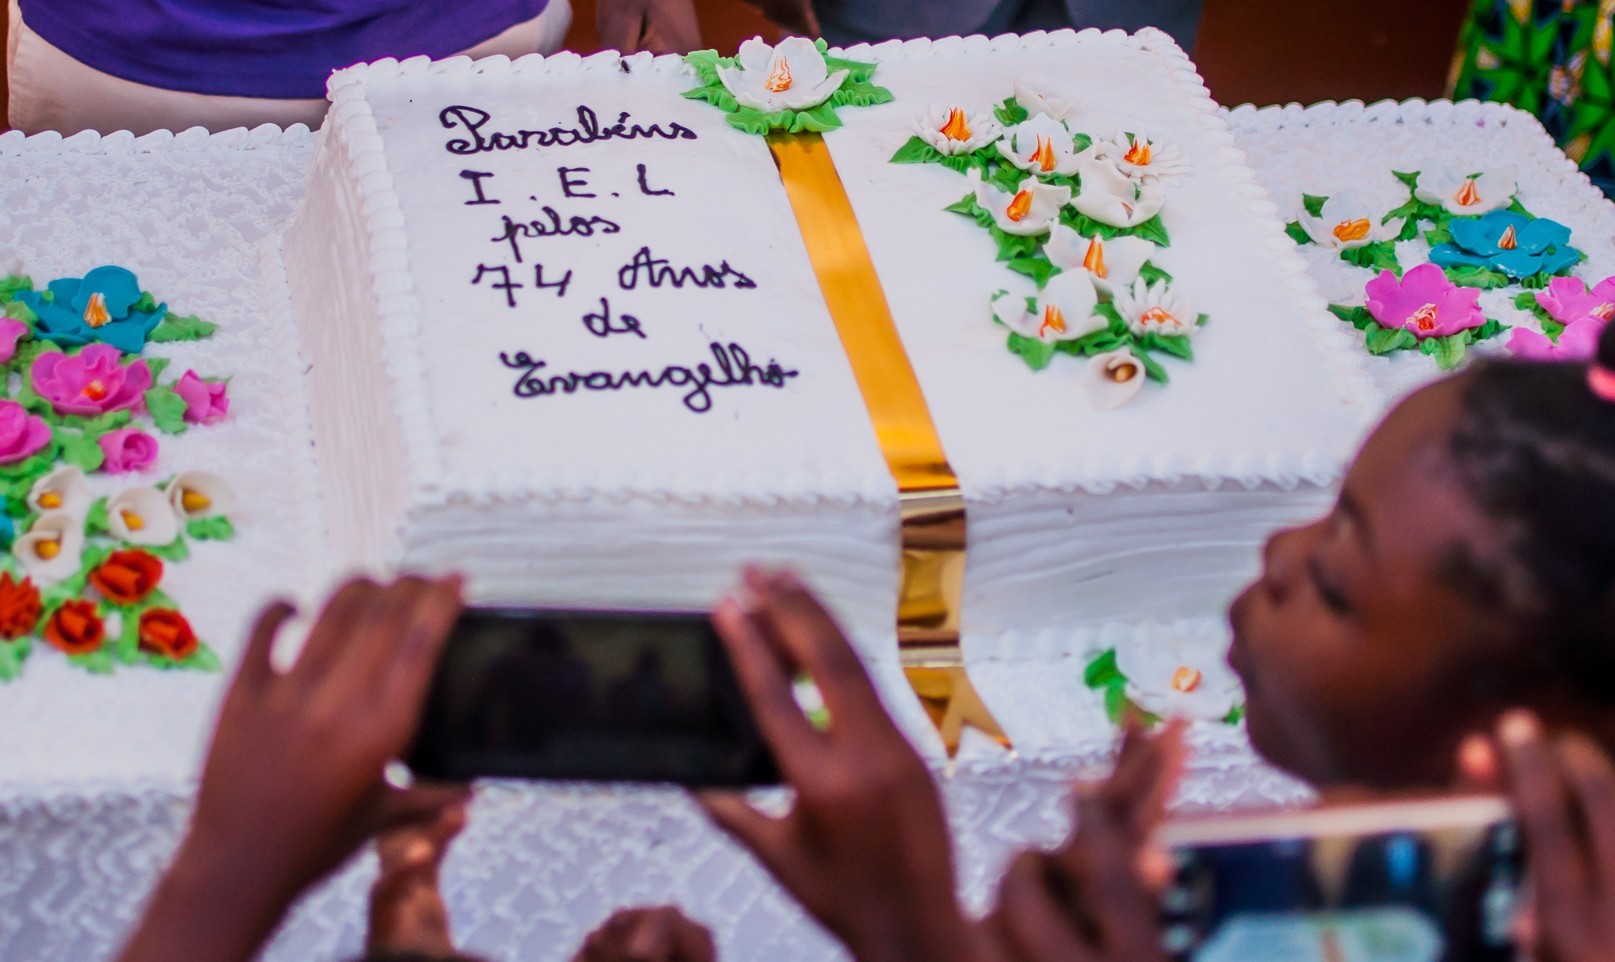 Parabéns
I . E . L
pelos
74 Anos
de
Evangelho